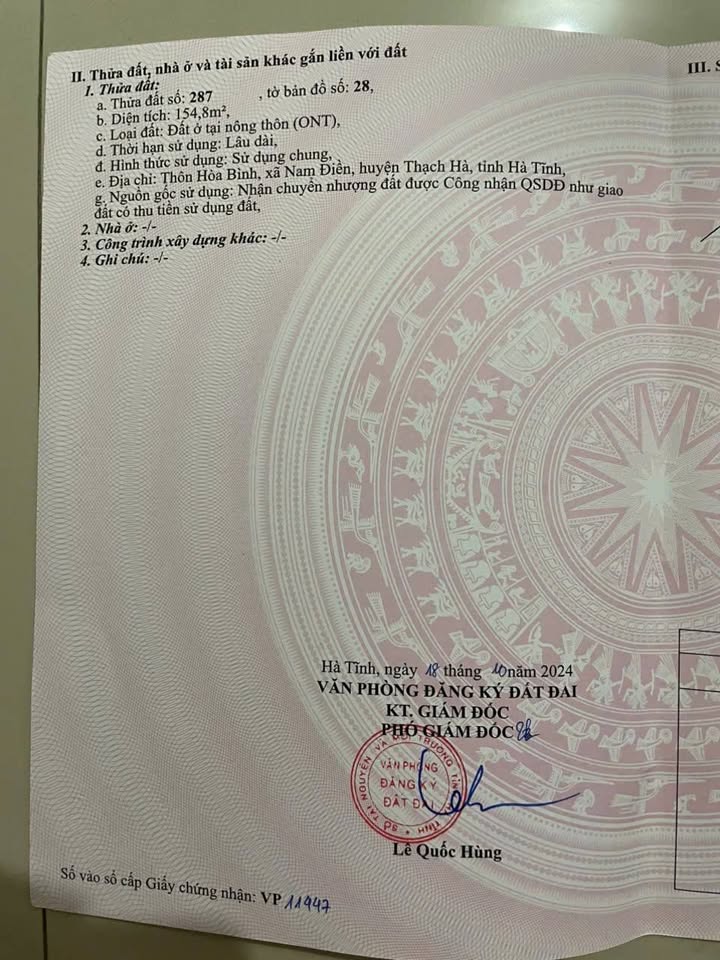 II. Thửa đất, nhà ở và tài sản khác gắn liền với đất
1. Thửa đất:
a. Thửa đất số: 287 , tờ bản đồ số: 28,
b. Diện tích: 154,8m²,
c. Loại đất: Đất ở tại nông thôn (ONT),
d. Thời hạn sử dụng: Lâu dài,
đ. Hình thức sử dụng: Sử dụng chung,
e. Địa chỉ: Thôn Hòa Bình, xã Nam Điền, huyện Thạch Hà, tỉnh Hà Tĩnh,
g. Nguồn gốc sử dụng: Nhận chuyển nhượng đất được Công nhận QSDĐ như giao
đất có thu tiền sử dụng đất,
2. Nhà ở: -/-
3. Công trình xây dựng khác: -/-
4. Ghi chú: -/-
III. S
Hà Tĩnh, ngày 18 tháng 10 năm 2024
VĂN PHÒNG ĐĂNG KÝ ĐẤT ĐAI
KT. GIÁM ĐỐC
PHÓ GIÁM ĐỐC
SỞ TÀI NGUYÊN VÀ MÔI TRƯỜNG TỈNH
VĂN PHÒNG
ĐĂNG KÝ
ĐẤT ĐAI
Lê Quốc Hùng
Số vào sổ cấp Giấy chứng nhận: VP 11947